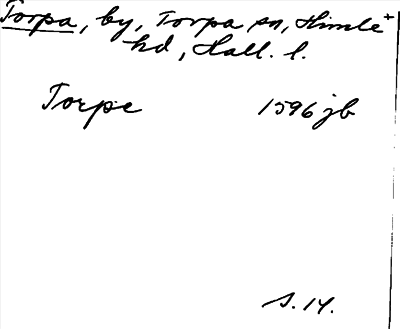 Torpa, by, Torpa sn, Himle+
hd, Hall. l.
Torpe 1596 jb
s. 14.